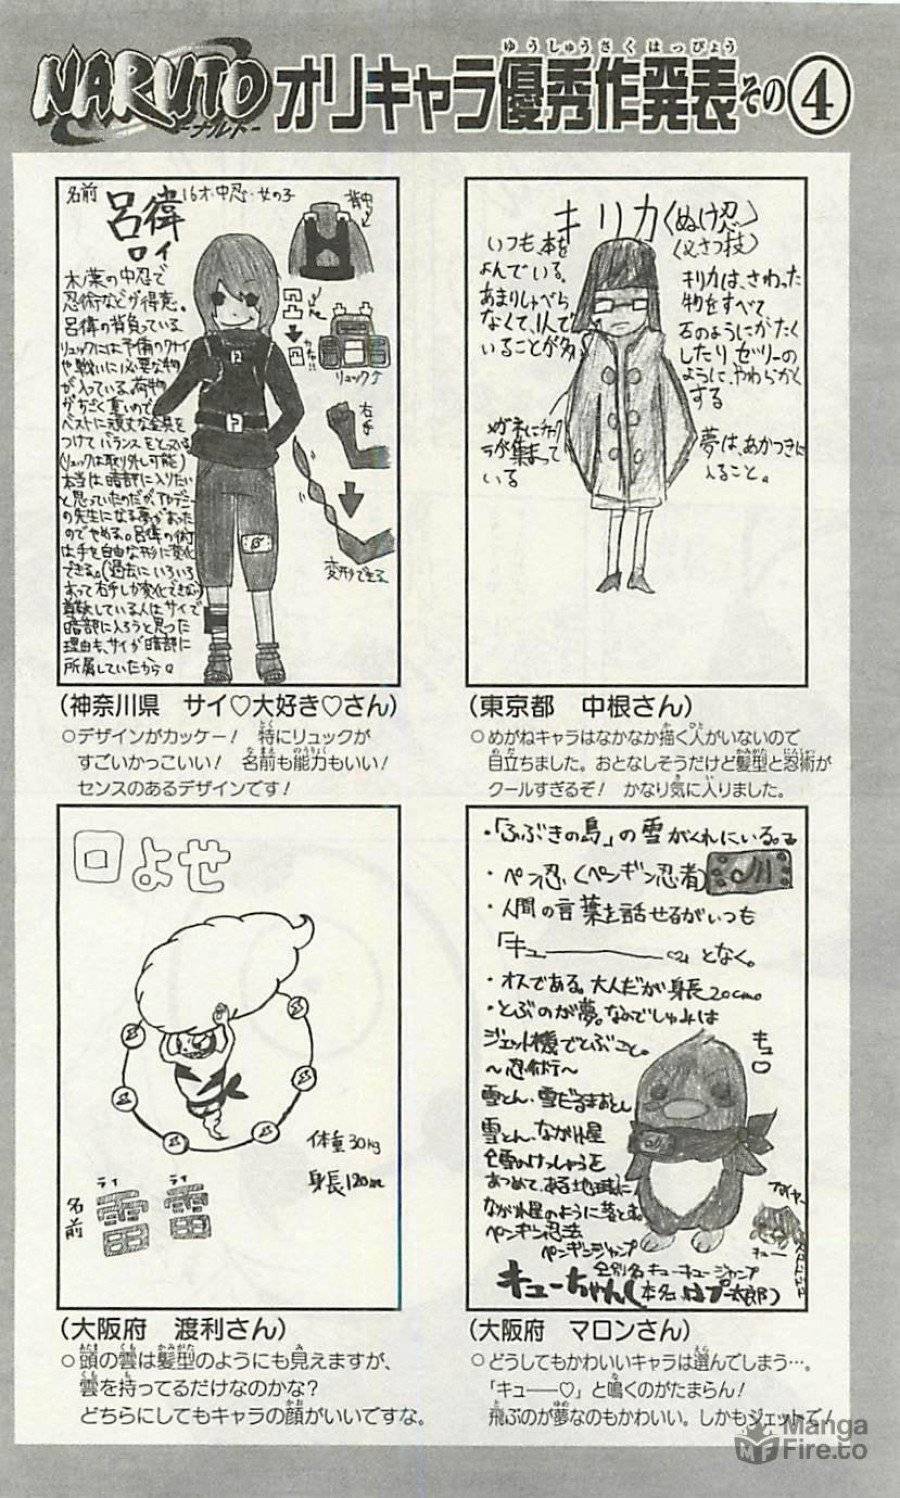 NARUTO
ーナルトー
オリキャラ優秀作発表その④
ゆうしゅうさくはっぴょう
名前
呂律
ロイ
16才・中忍・女の子
背中
木ノ葉の中忍で
忍術などが得意。
呂律の背負っている
リュックには予備のクナイ
や戦いに必要な物
が入っている。荷物
がすごく重いので
ベストに頑丈な金具を
つけてバランスをとっている
(リュックは取り外し可能)
本当は暗部に入りたい
と思っていたのだが、アカデミー
の先生になる夢があった
のでやめる。呂律の術
は手を自由な形に変化
できる。(過去にいろいろ
あって右手しか変化できない)
尊敬している人はサイで
暗部に入ろうと思った
理由も、サイが暗部に
所属していたから。
リュック↑
右手
変形できる
キリカ(ぬけ忍)
いつも、本を
よんでいる。
あまりしゃべら
なくて、1人で
いることが多い
キリカは、さわった
物をすべて
石のようにかたく
したり ゼリーの
ように、やわらかく
する
めがねにチャク
ラが集まって
いる
夢は、あかつきに
入ること。
(神奈川県 サイ♡大好き♡さん)
○デザインがカッケー! 特にリュックが
すごいかっこいい! 名前も能力もいい!
センスのあるデザインです!
(東京都 中根さん)
○めがねキャラはなかなか描く人がいないので
目立ちました。おとなしそうだけど髪型と忍術が
クールすぎるぞ! かなり気に入りました。
口よせ
体重30kg
身長120cm
名前
ライ ライ
雷 雷
・「ふぶきの島」の雪がくれにいる。
・ペン忍(ペンギン忍者)
・人間の言葉を話せるがいつも
「キュ――――♡」となく。
・オスである。大人だが身長20cm。
・とぶのが夢。なみでしゅみは
ジェット機でとぶこと。
～忍術～
雪とん・雪だるまおとし
雪とん・ながれ星
ながれ星のように落とす。
ペンギン忍法
ペンギンジャンプ
別名キューキュージャンプ
キュ♡
キューちゃん(本名
(大阪府 渡利さん)
○頭の雲は髪型のようにも見えますが、
雲を持ってるだけなのかな?
どちらにしてもキャラの顔がいいですな。
(大阪府 マロンさん)
○どうしてもかわいいキャラは選んでしまう…。
「キュ――♡」と鳴くのがたまらん!
飛ぶのが夢なのもかわいい。しかもジェットで!
Manga
Fire.to
MF